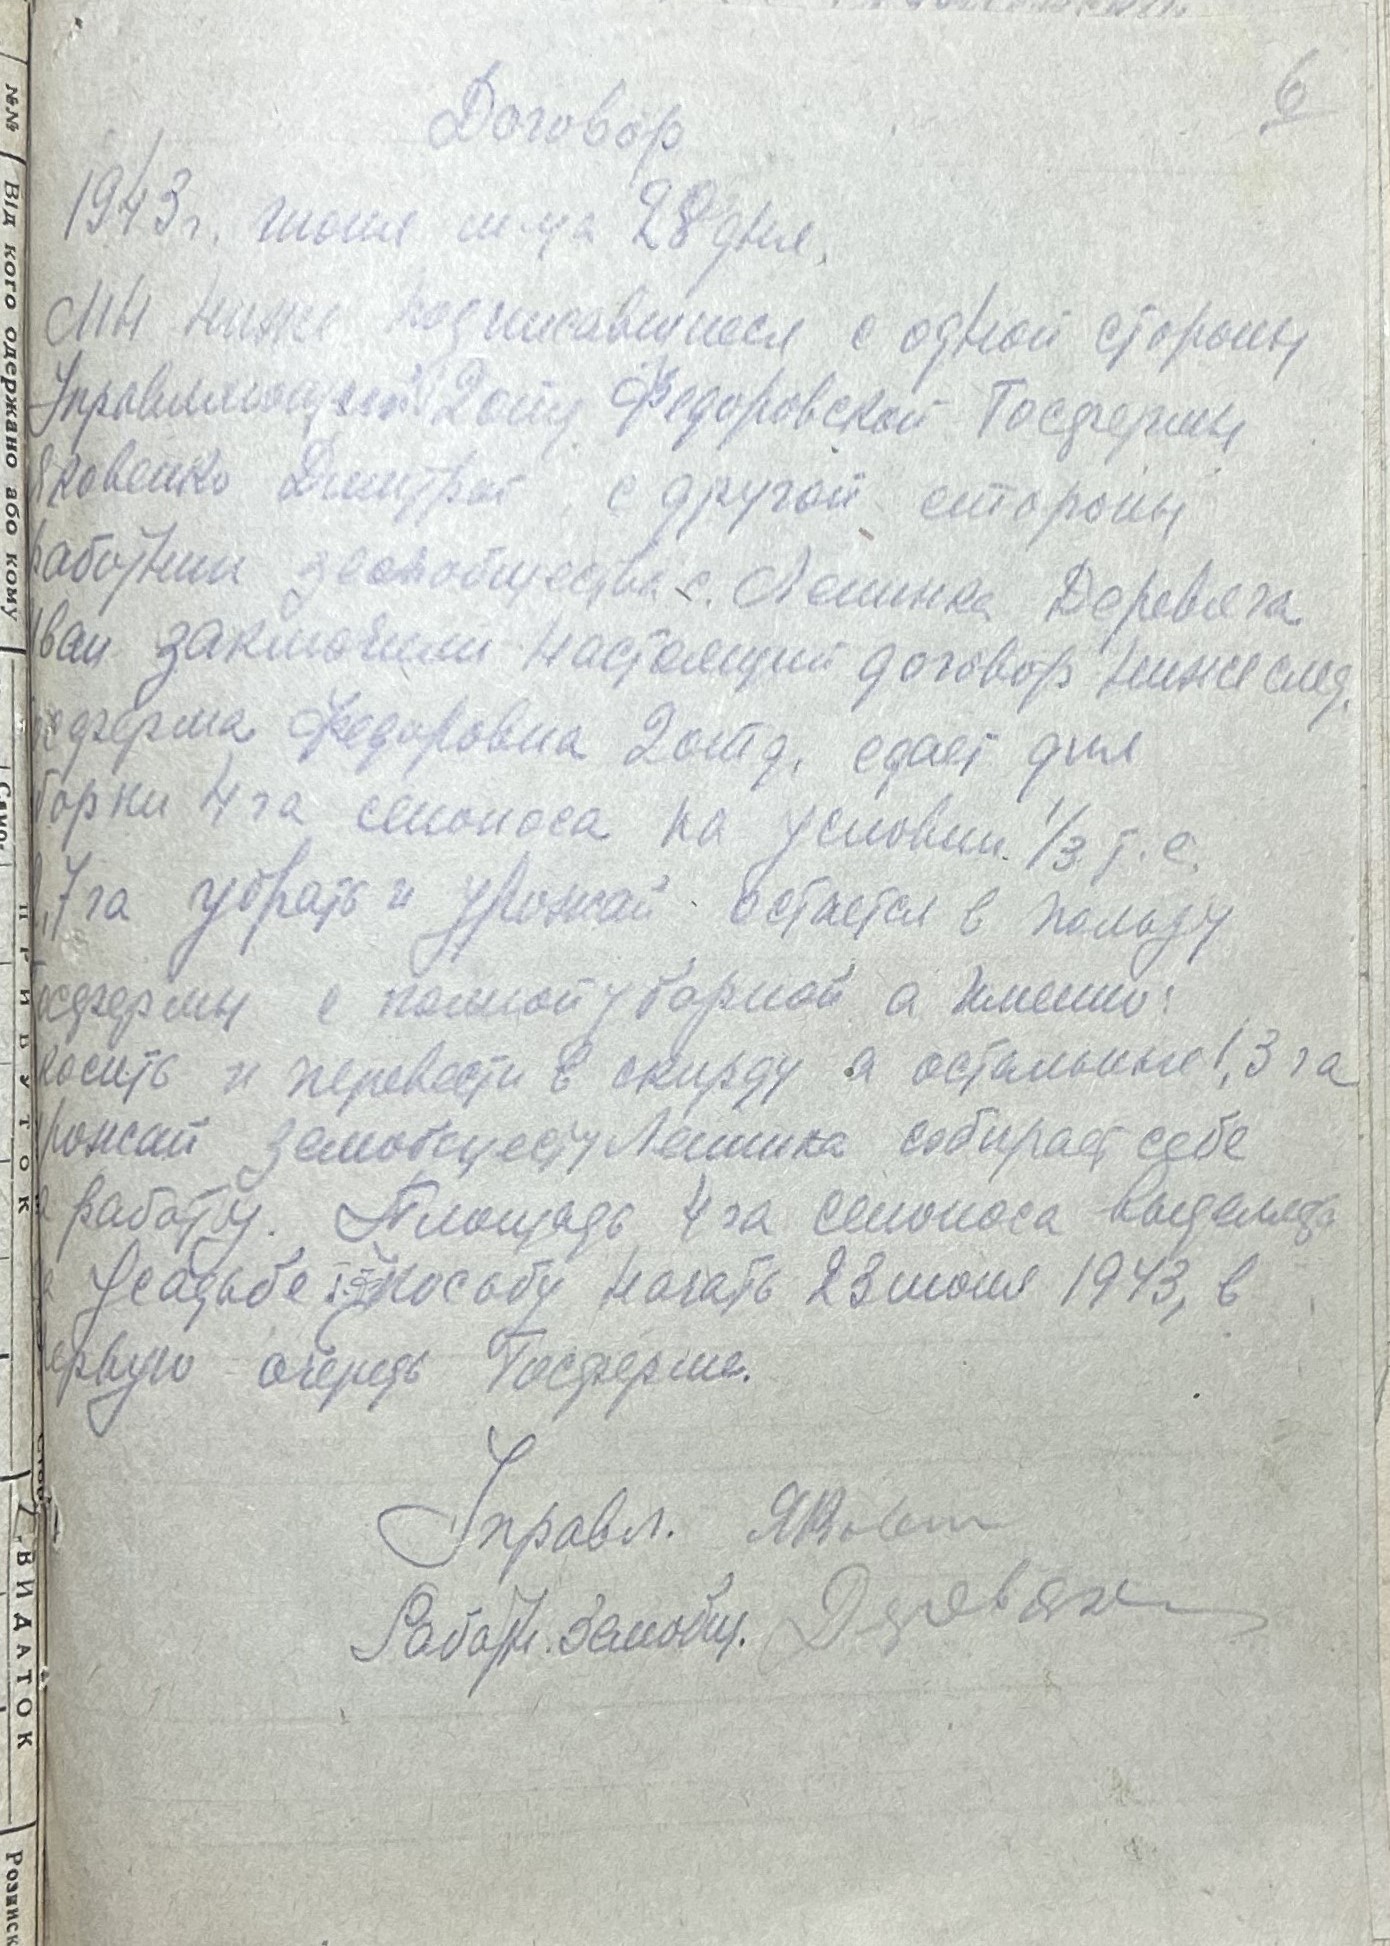 6
Договор
1943 г. июня м-ца 28 дня.
Мы ниже подписавшиеся с одной стороны
Управляющий 2 отд. Федоровской Госфермы
Яковенко Дмитрий с другой стороны
работник земобщества с. Ленинка Деревяга
Иван заключили настоящий договор нижеслед.
осферма Федоровка 2 отд. сдает для
борки 4 га сенокоса на условии 1/3 т.е.
,7 га убрать и урожай остается в пользу
осфермы с полной уборкой а именно:
косить и перевести в скирду а остальные 1,3 га
рожай земобществу Ленинка собирает себе
а работу. Площадь 4 га сенокоса
а усадьбе косьбу начать 23 июня 1943, в
ервую очередь Госферме.
Управл.
Работн. земобщ.
№№
Від кого одержано або кому
ПРИБУТОК
ВИДАТОК
Розписк